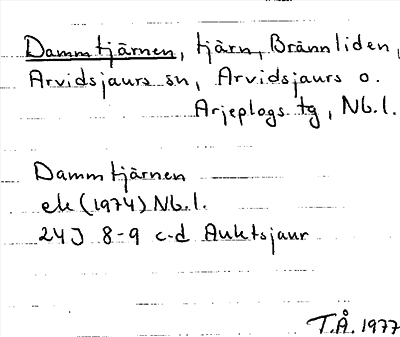 Dammtjärnen, tjärn, Brännliden,
Arvidsjaurs sn, Arvidsjaurs o.
Arjeplogs tg, Nb.l.
Dammtjärnen
ek (1974) Nb.l.
24J 8-9 c-d Auktsjaur
T.Å. 1977